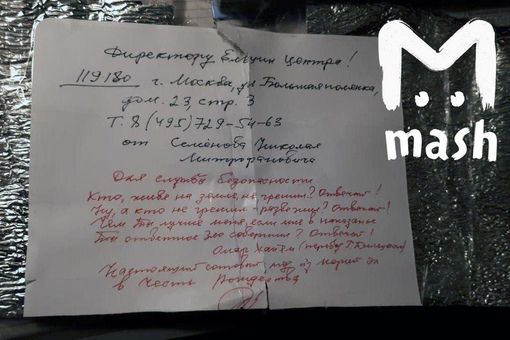 Директору Ельцин Центра!
119180 г. Москва, ул Большая полянка,
дом. 23, стр. 3
Т. 8(495)729-54-63
от Семёнова Николая
Митрофановича
Для службы безопасности
Кто, живя на земле, не грешил? Ответь!
Ну, а кто не грешил - разве жил? Ответь!
Чем Ты лучше меня, если мне в наказанье
Ты ответное зло совершил? Ответь!
Омар Хайям (перевод Г.
Настоящий
в Честь Рождества
mash